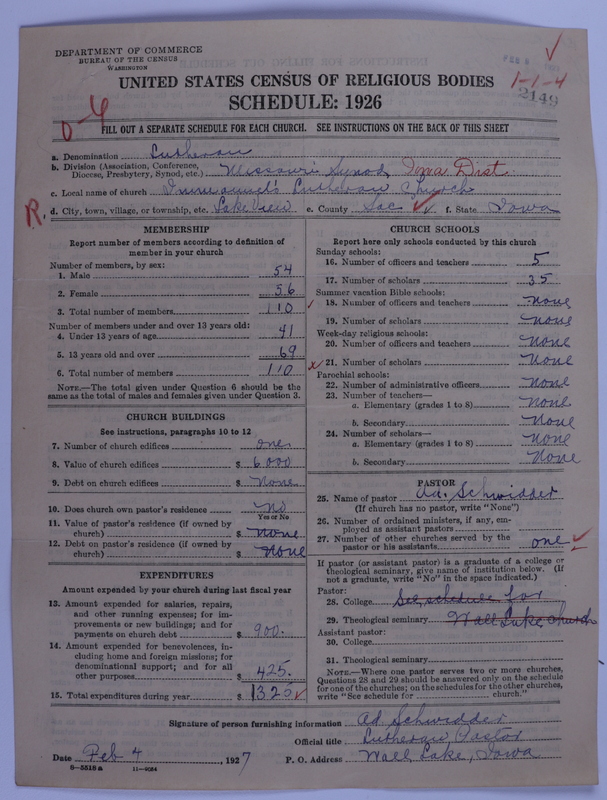 DEPARTMENT OF COMMERCE
BUREAU OF THE CENSUS
WASHINGTON
1-1-4
2149
UNITED STATES CENSUS OF RELIGIOUS BODIES
SCHEDULE: 1926
0-6
FILL OUT A SEPARATE SCHEDULE FOR EACH CHURCH. SEE INSTRUCTIONS ON THE BACK OF THIS SHEET
a. Denomination Lutheran
b. Division (Association, Conference, Diocese, Presbytery, Synod, etc.) Missouri Synod Iowa Dist.
c. Local name of church Immanuel's Lutheran Church
R. d. City, town, village, or township, etc. Lake View e. County Sac f. State Iowa
MEMBERSHIP
Report number of members according to definition of
member in your church
Number of members, by sex:
1. Male 54
2. Female 56
3. Total number of members 110
Number of members under and over 13 years old:
4. Under 13 years of age 41
5. 13 years old and over 69
6. Total number of members 110
NOTE.—The total given under Question 6 should be the
same as the total of males and females given under Question 3.
CHURCH BUILDINGS
See instructions, paragraphs 10 to 12
7. Number of church edifices one
8. Value of church edifices $ 6,000
9. Debt on church edifices $ None
10. Does church own pastor's residence no
Yes or No
11. Value of pastor's residence (if owned by
church) $ none
12. Debt on pastor's residence (if owned by
church) $ none
EXPENDITURES
Amount expended by your church during last fiscal year
13. Amount expended for salaries, repairs,
and other running expenses; for im-
provements or new buildings; and for
payments on church debt $ 900.
14. Amount expended for benevolences, in-
cluding home and foreign missions; for
denominational support; and for all
other purposes $ 425.
15. Total expenditures during year $ 1320
CHURCH SCHOOLS
Report here only schools conducted by this church
Sunday schools:
16. Number of officers and teachers 5
17. Number of scholars 35
Summer vacation Bible schools:
18. Number of officers and teachers none
19. Number of scholars None
Week-day religious schools:
20. Number of officers and teachers None
21. Number of scholars None
Parochial schools:
22. Number of administrative officers None
23. Number of teachers—
a. Elementary (grades 1 to 8) None
b. Secondary None
24. Number of scholars—
a. Elementary (grades 1 to 8) None
b. Secondary None
PASTOR
25. Name of pastor Ad. Schwidder
(If church has no pastor, write "None")
26. Number of ordained ministers, if any, em-
ployed as assistant pastors
27. Number of other churches served by the
pastor or his assistants one
If pastor (or assistant pastor) is a graduate of a college or
theological seminary, give name of institution below. (If
not a graduate, write "No" in the space indicated.)
Pastor:
28. College See schedule for
29. Theological seminary Wall Lake church
Assistant pastor:
30. College
31. Theological seminary
NOTE.—Where one pastor serves two or more churches,
Questions 28 and 29 should be answered only on the schedule
for one of the churches; on the schedules for the other churches,
write "See schedule for church."
Signature of person furnishing information Ad Schwidder
Official title Lutheran Pastor
Date Feb 4, 1927 P. O. Address Wall Lake, Iowa
8-5518a 11-9084